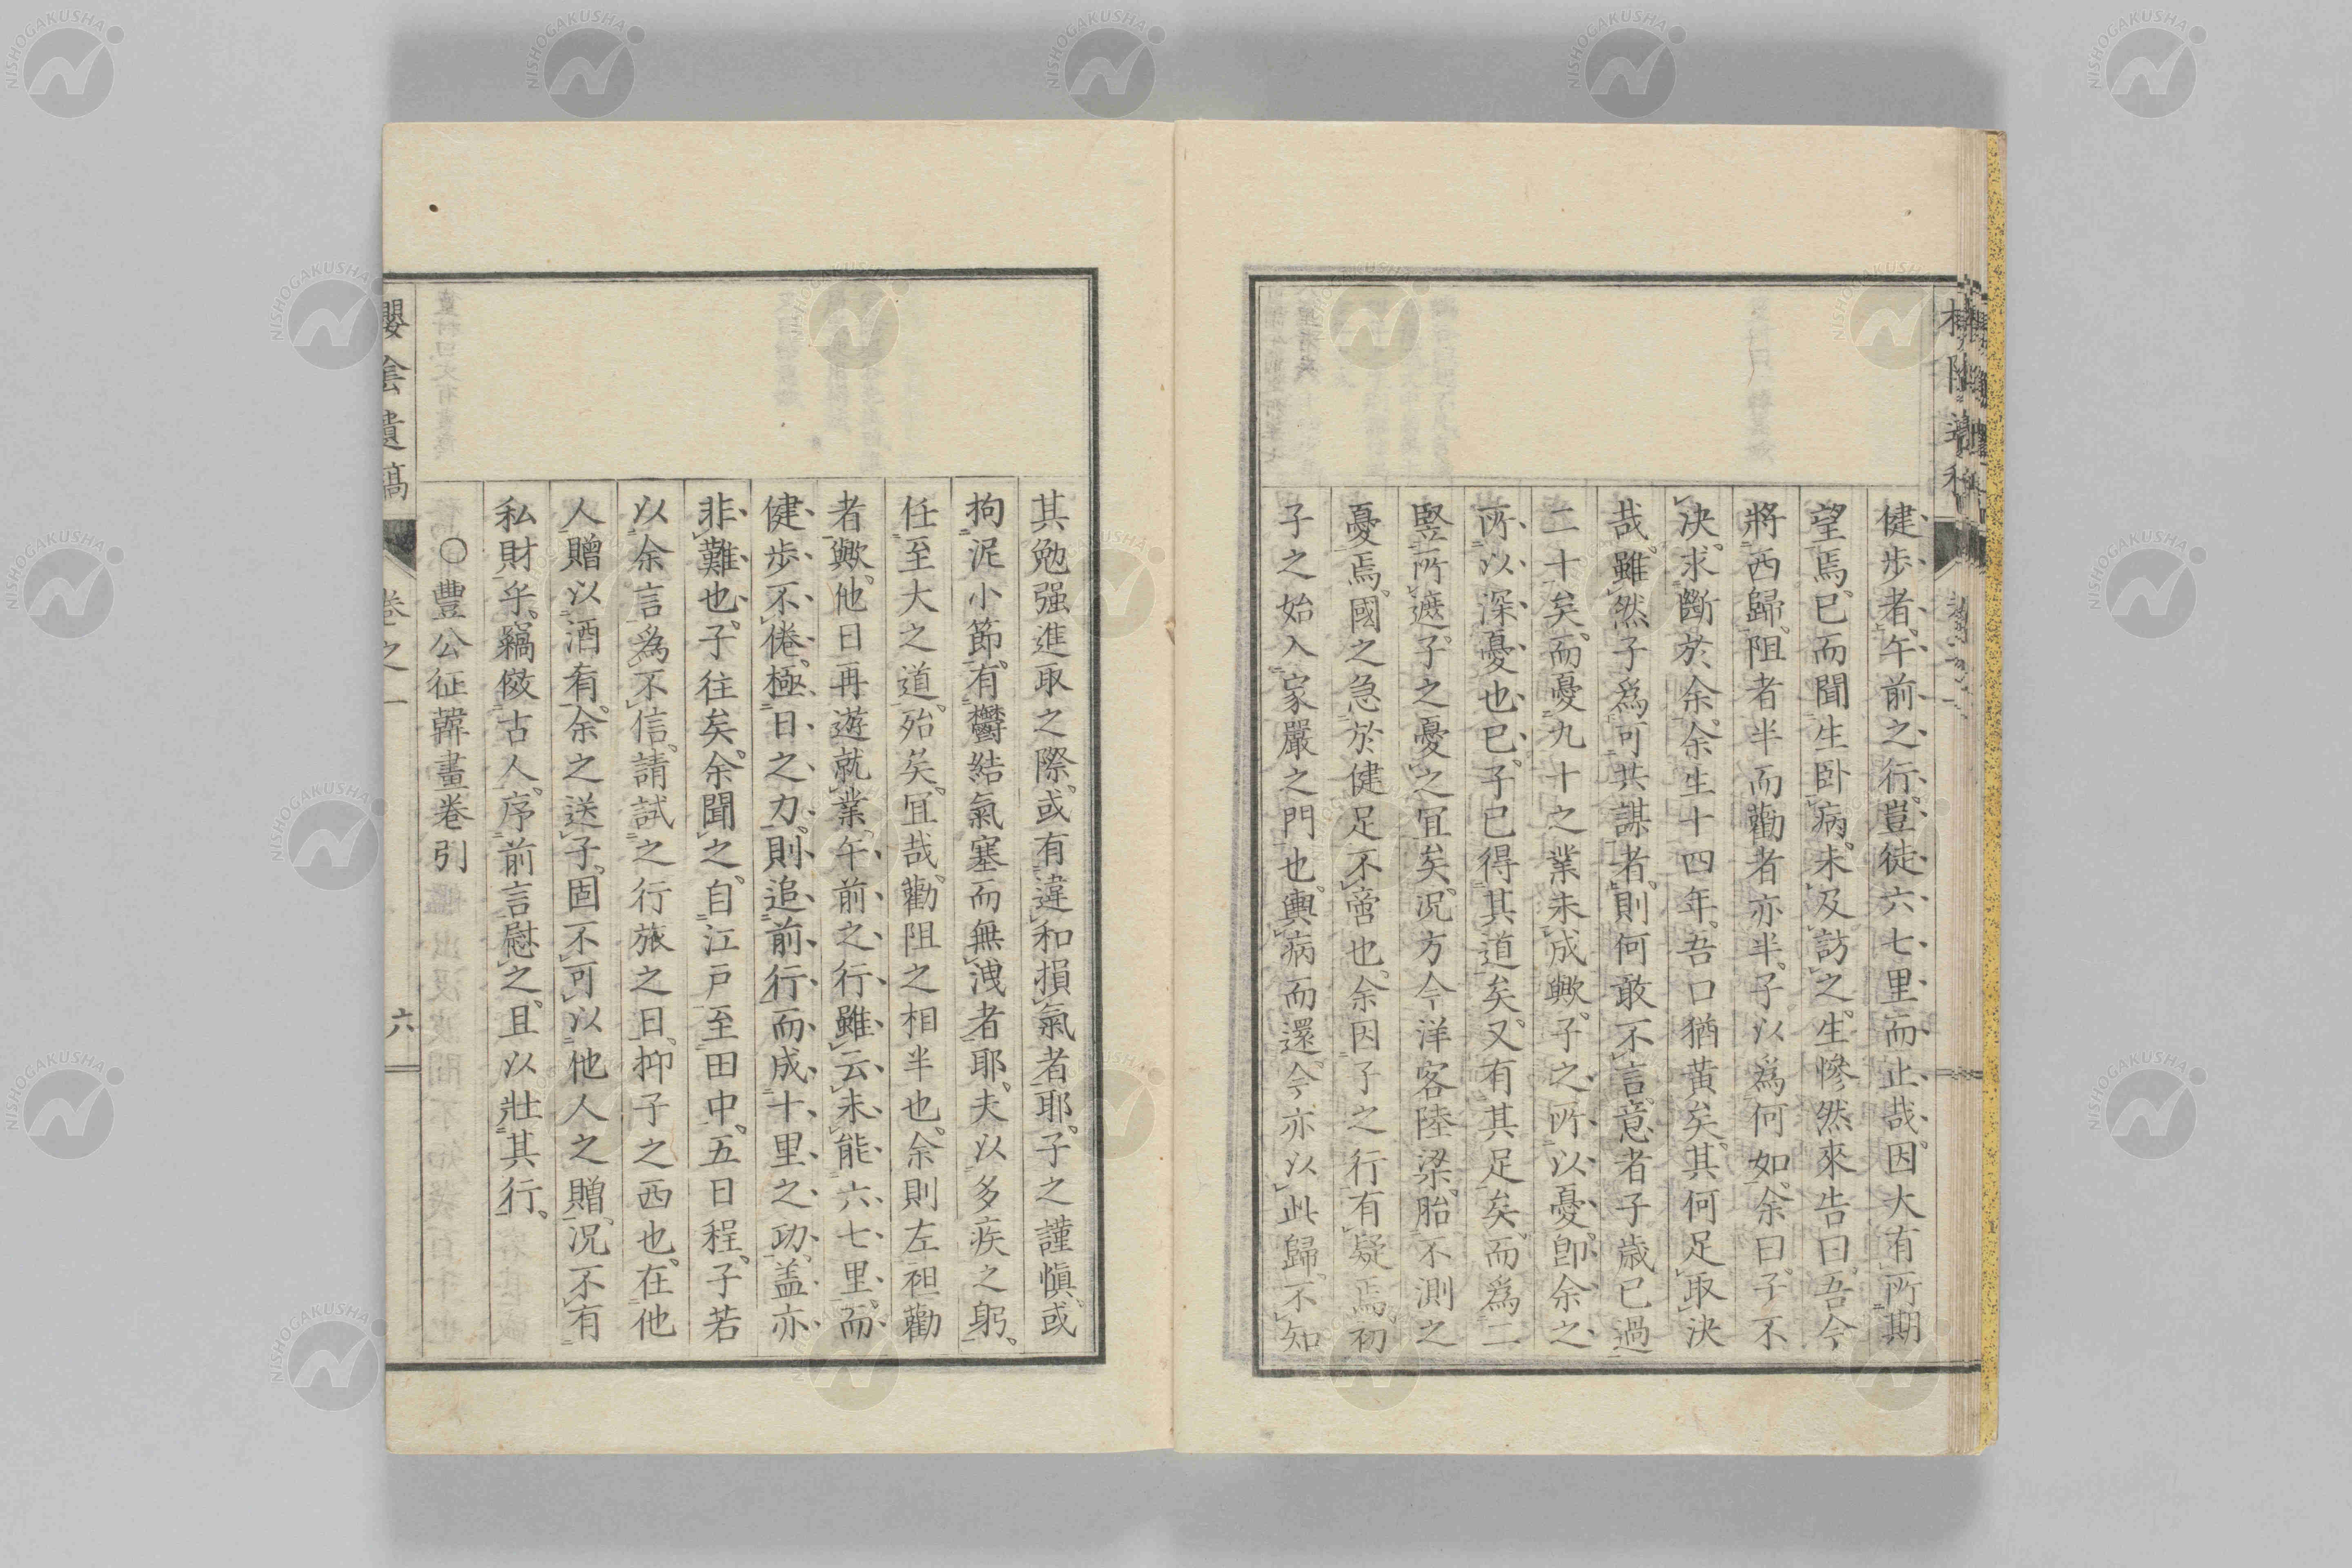 健歩者。午前之行。豈徒六七里而止哉。因大有所期
望焉。已而聞生卧病。未及訪之。生慘然來告曰。吾今
將西歸。阻者半而勸者亦半。子以爲何如。余曰。子不
決。求斷於余。余生十四年。吾口猶黃矣。其何足取決
哉。雖然子爲可共謀者。則何敢不言。意者子歳已過
二十矣。而憂九十之業未成歟。子之所以憂。卽余之
所以深憂也已。子已得其道矣。又有其足矣。而爲二
豎所遮。子之憂之冝矣。況方今洋客陸梁。胎不測之
憂焉。國之急於健足。不啻也。余因子之行有疑焉。初
子之始入家嚴之門也。輿病而還。今亦以此歸。不知
其勉强進取之際。或有違和損氣者耶。子之謹愼。或
拘泥小節。有鬱結氣塞而無洩者耶。夫以多疾之躬。
任至大之道。殆矣。冝哉。勸阻之相半也。余則左袒勸
者歟。他日再遊就業。午前之行。雖云未能六七里。而
健歩不倦。極日之力。則追前行而成十里之功。盖亦
非難也。子往矣。余聞之。自江戸至田中。五日程。子若
以余言爲不信。請試之行旅之日。抑子之西也。在他
人贈以酒有。余之送子。固不可以他人之贈。況不有
私財乎。竊傚古人。序前言慰之。且以壯其行。
○豐公征韓畫卷引
櫻陰遺稿
卷之一
六
NISHOGAKUSHA